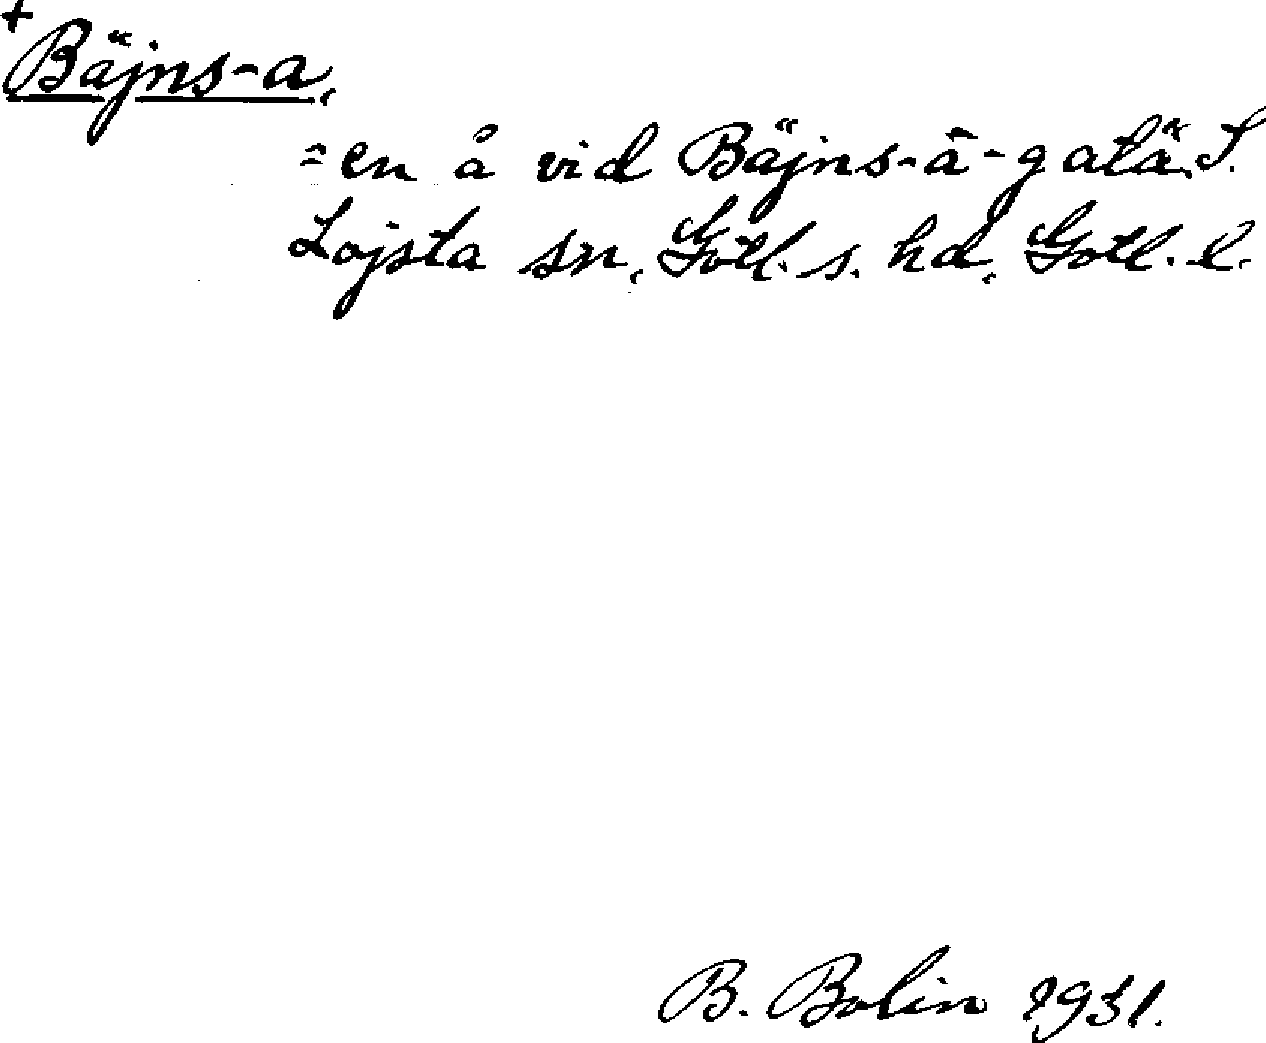 +
Bäjns-a,
= en å vid Bäjns-ā-gatä. I.
Lojsta sn, Gotl. s. hd, Gotl. l.
B. Bolin 1931.